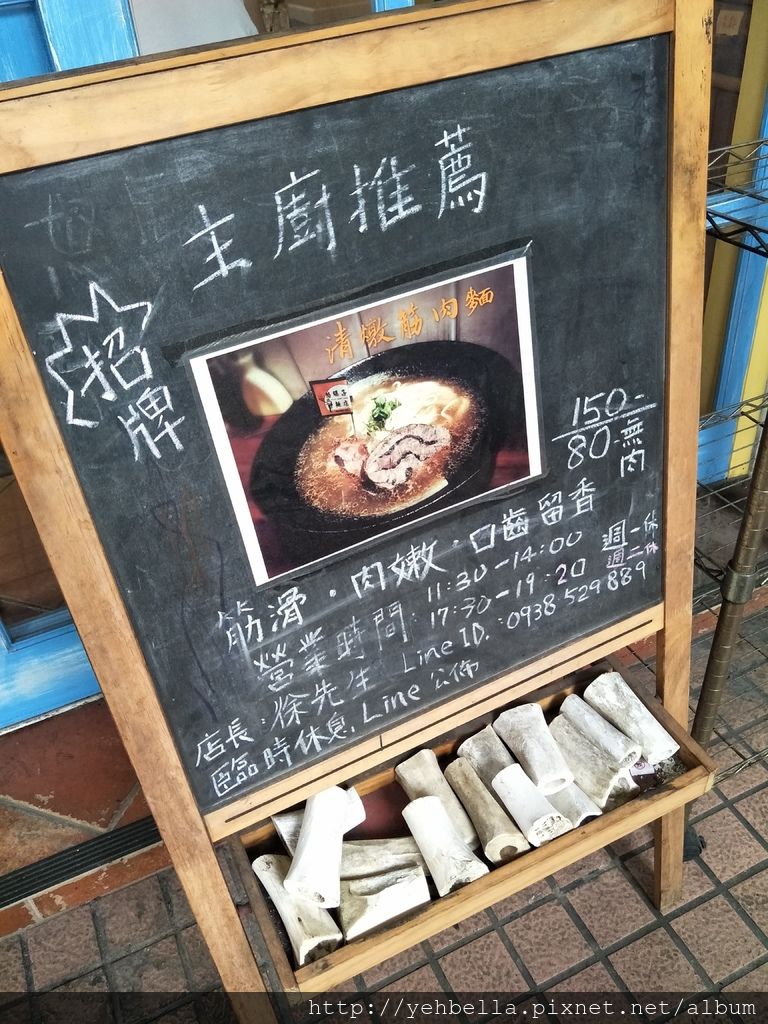 主廚推薦
招牌
清燉筋肉麵
150-
80-無肉
筋滑・肉嫩・口齒留香
營業時間: 11:30-14:00
17:30-19:20
週一休
週二休
店長:徐先生 Line ID.:0938529889
臨時休息,Line公佈
http://yehbella.pixnet.net/album